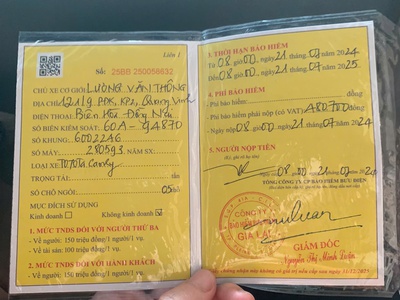 Liên 1
Số: 25BB 250056632
CHỦ XE CƠ GIỚI LƯƠNG VĂN THÔNG
ĐỊA CHỈ: 1219 PĐK, KP2, Quang Vinh
ĐIỆN THOẠI Biên Hòa - Đồng Nai
SỐ BIỂN KIỂM SOÁT: 60A - 94870
SỐ KHUNG: 6002246
SỐ MÁY: 280593 NĂM SX:
LOẠI XE TOYOTA Camry
TRỌNG TẢI: tấn
SỐ CHỖ NGỒI: 05 chỗ
MỤC ĐÍCH SỬ DỤNG
Kinh doanh Không kinh doanh
1. MỨC TNDS ĐỐI VỚI NGƯỜI THỨ BA
- Về người: 150 triệu đồng/1 người/1 vụ.
- Về tài sản: 100 triệu đồng/1 vụ.
2. MỨC TNDS ĐỐI VỚI HÀNH KHÁCH
- Về người: 150 triệu đồng/1 người/1 vụ.
3. THỜI HẠN BẢO HIỂM
Từ 08 giờ 00, ngày 21 tháng 07 / 2024
Đến 08 giờ 00, ngày 21 tháng 07 / 2025
4. PHÍ BẢO HIỂM
Phí bảo hiểm: đồng
Phí bảo hiểm phải nộp (có VAT) 480.700 đồng
- Ngày nộp 08 giờ 00 21 tháng 07 / 2024
5. NGƯỜI NỘP TIỀN
08 00 21 07 2024
TỔNG CÔNG TY BẢO HIỂM BƯU ĐIỆN
CÔNG TY
GIA LAI
GIÁM ĐỐC
Nguyễn Thị Minh Luận
chứng nhận này không có giá trị nếu cấp sau ngày 31/12/2025